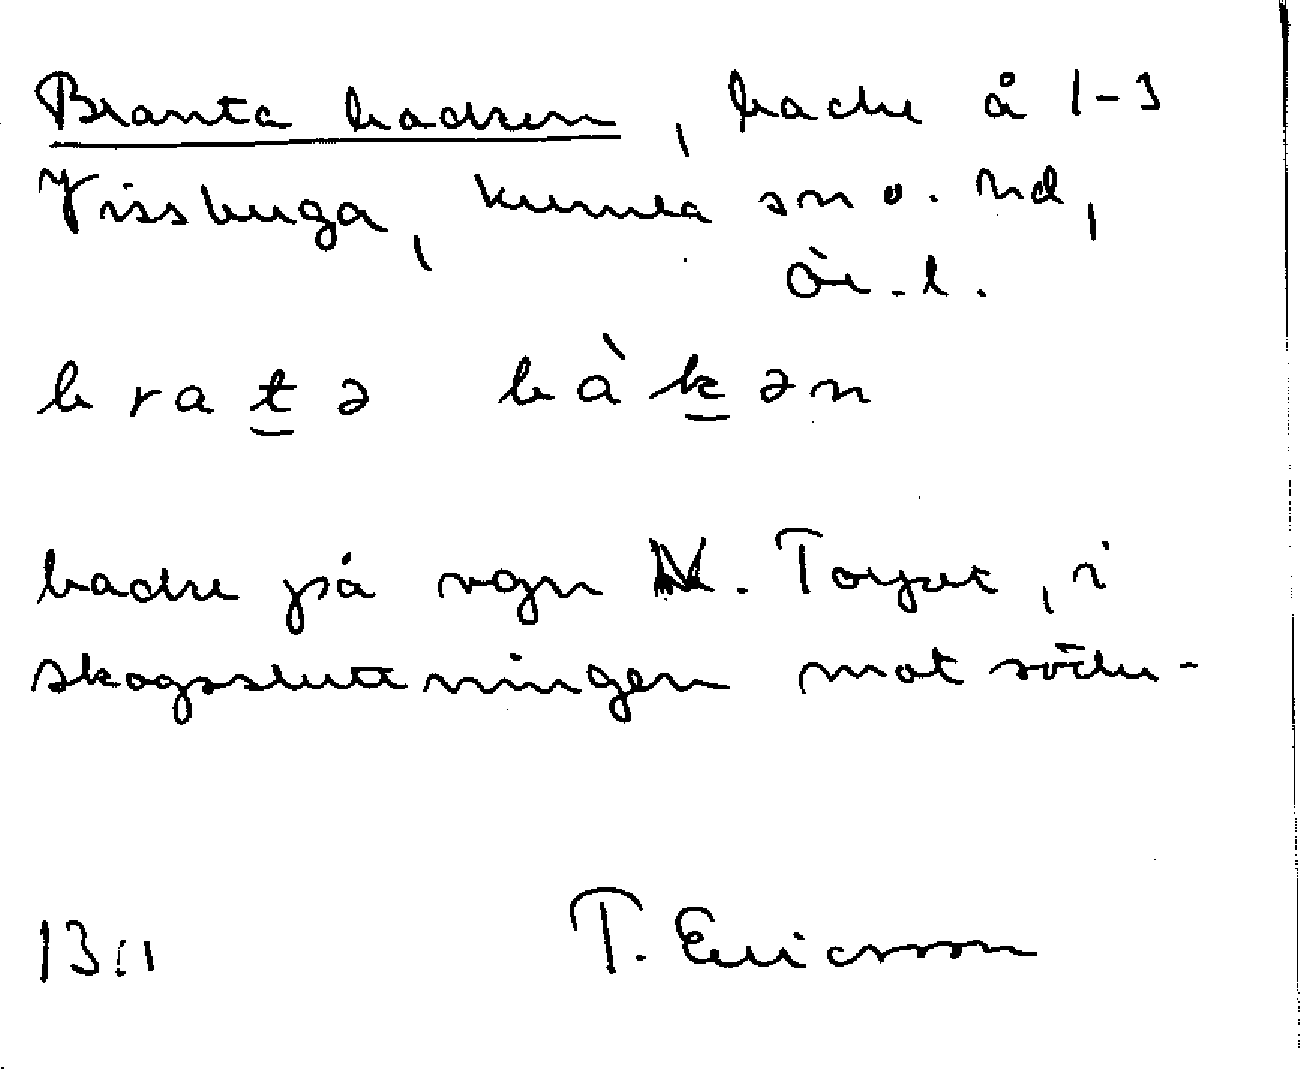 Branta backen, backe å 1-3
Vissbuga, Kumla sn o. hd,
Ör. l.
bratə bàkən
backe på vgn N. Torpet, i
skogssluttningen mot söder-
T. Ericsson